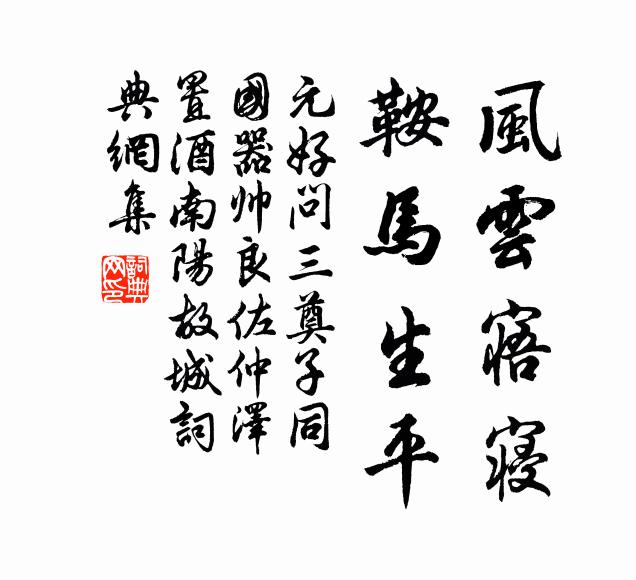 風雲寤寐
鞍馬生平
元好問三奠子同
國器帅良佐仲澤
置酒南陽故城詞
典網集
詞典
网印